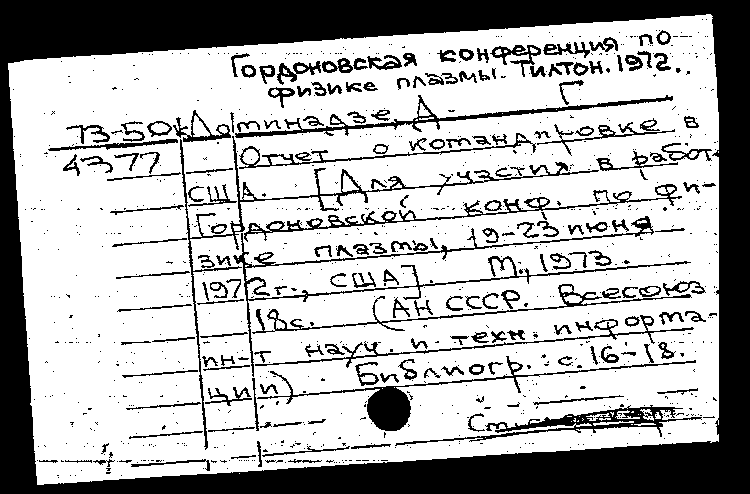 Гордоновская конференция по
физике плазмы. Тилтон. 1972.
73-50к Лотинадзе, Д. Г
4377 Отчет о командировке в
США. [Для участия в работе
Гордоновской конф. по фи-
зике плазмы, 19-23 июня
1972 г., США]. М., 1973.
18 с. (АН СССР. Всесоюз.
ин-т науч. и техн. информа-
ции). Библиогр.: с. 16-18.